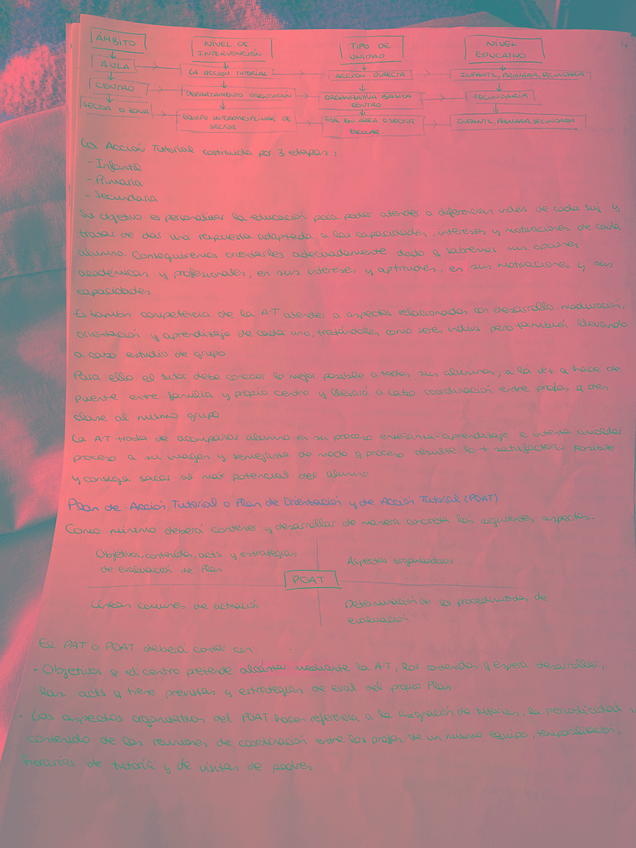 ÁMBITO NIVEL DE INTERVENCIÓN TIPO DE UNIDAD NIVEL EDUCATIVO
AULA LA ACCIÓN TUTORIAL ACCIÓN DIRECTA INFANTIL, PRIMARIA, SECUNDARIA
CENTRO DEPARTAMENTO ORIENTACIÓN ORGANIZATIVA BÁSICA CENTRO SECUNDARIA
SECTOR O ZONA EQUIPO INTERDISCIPLINAR DE SECTOR EN ÁREA O SECTOR ESCOLAR INFANTIL, PRIMARIA, SECUNDARIA
La Acción Tutorial constituida por 3 etapas:
- Infantil
- Primaria
- Secundaria
Su objetivo es personalizar la educación para poder atender a diferencias indivs de cada suj y
tratar de dar una respuesta adaptada a las capacidades, intereses y motivaciones de cada
alumno. Conseguiremos orientarles adecuadamente dado q sabemos sus opciones
académicas y profesionales, en sus intereses y aptitudes, en sus motivaciones y sus
capacidades.
Es también competencia de la AT atender a aspectos relacionados con desarrollo, maduración,
orientación y aprendizaje de cada uno, tratándoles como seres indivs pero también llevando
a cabo estudio de grupo.
Para ello el tutor debe conocer lo mejor posible a todos sus alumnos, a la vez q hace de
puente entre familia y propio centro y llevará a cabo coordinación entre profes q den
clase al mismo grupo.
La AT trata de acompañar alumno en su proceso enseñanza-aprendizaje e intenta moldear
proceso a su imagen y semejanza de modo q proceso resulte lo + satisfactorio posible
y consiga sacar el máx potencial del alumno.
Plan de Acción Tutorial o Plan de Orientación y de Acción Tutorial (POAT)
Como mínimo deberá contener y desarrollar de manera concreta los siguientes aspectos.
Objetivos, contenidos, acts y estrategias
de evaluación del Plan
Aspectos organizativos
POAT
Líneas comunes de actuación
Determinación de los procedimientos de
evaluación
El PAT o POAT deberá contar con:
- Objetivos q el centro pretende alcanzar mediante la AT, los contenidos q espera desarrollar,
las acts q tiene previstas y estrategias de eval del propio Plan
- Los aspectos organizativos del POAT hacen referencia a la asignación de tutorías, la periodicidad y
contenido de las reuniones, de coordinación entre los profes de un mismo equipo, temporalización,
horarios de tutoría y de visitas de padres.